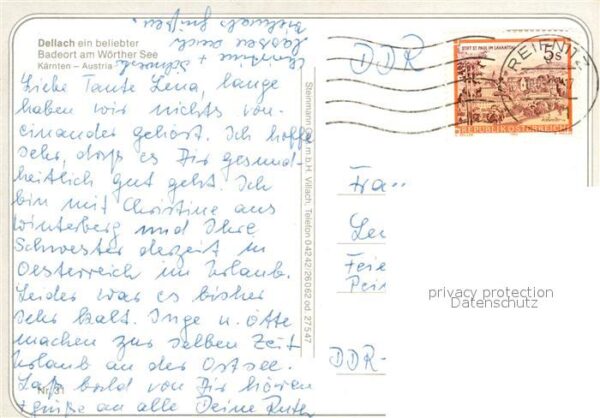 Dellach ein beliebter
Badeort am Wörther See
Kärnten – Austria
Liebe Tante Lena, lange
haben wir nichts von-
einander gehört. Ich hoffe
sehr, daß es Dir gesund-
heitlich gut geht. Ich
bin mit Christine aus
Winterberg und Ihre
Schwester derzeit in
Oesterreich im Urlaub.
Leider war es bisher
sehr kalt. Inge u. Otto
machen zur selben Zeit
Urlaub an der Ostsee.
Laß bald von Dir hören
grüße an alle Deine Ruth
Christine + Schwest.
lassen auch
vielmals grüßen.
Nr. 31
m.b.H. Villach, Telefon 04242/26062 od. 27547
DDR
STIFT ST. PAUL IM LAVANTTAL
5s
REPUBLIK ÖSTERREICH
REIFNITZ
Frau
Len
Feie
DDR-
privacy protection
Datenschutz